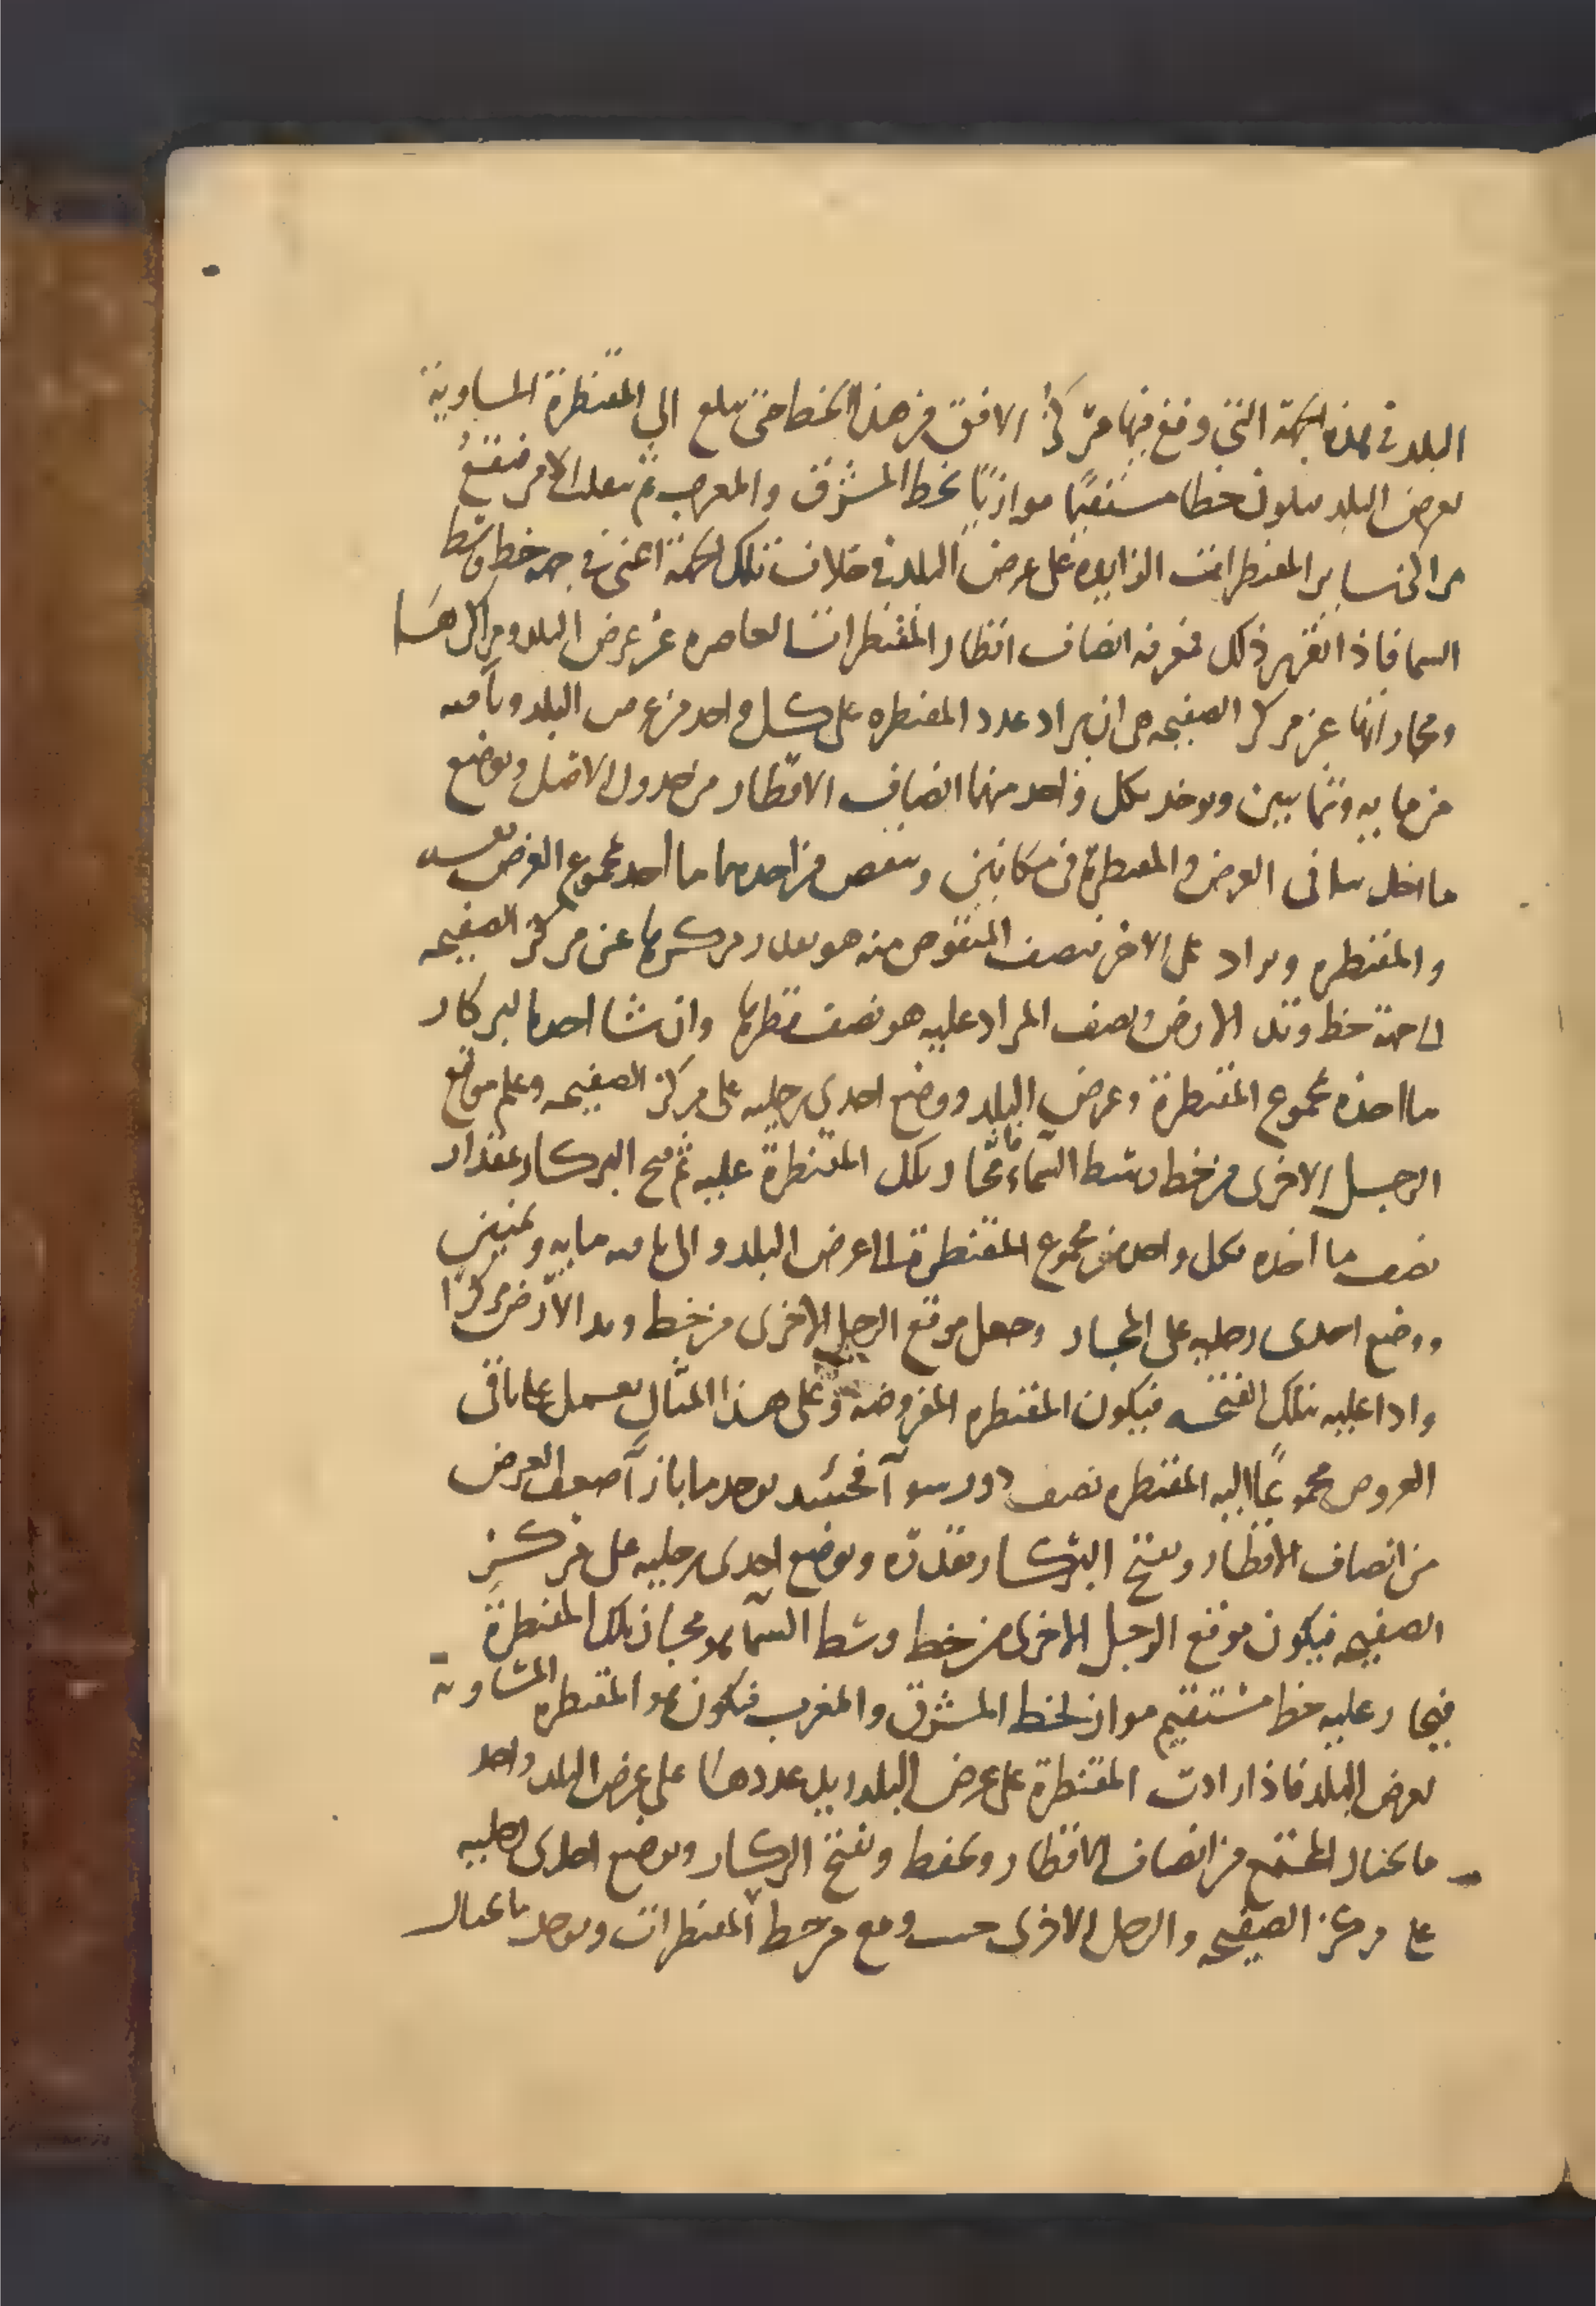 البلد في هذه الجهة التي وقع فيها مركز الافق من هذا الخط حتى يبلغ الى المقنطرة المساوية
لعرض البلد فيكون خطا مستقيما موازيا لخط المشرق والمغرب ثم ينقلب الامر فتقع
مراكز ساير المقنطرات الزايدة على عرض البلد في خلاف تلك الجهة اعنى في جهة خط وسط
السما فاذا تقرر ذلك فمعرفة انصاف اقطار المقنطرات القاصرة عن عرض البلد ومراكزها
ومجازاتها عن مركز الصفيحه هى ان يزاد عدد المقنطره على كل واحد من عرض البلد وتمامه
من مايه وثمانين ويوخذ بكل واحد منهما انصاف الاقطار من جدول الاصل ويوضع
ما اخذ بباقى العرض والمقنطرة فى مكانين وينقص من احدهما ما اخذ بمجموع العرض نفسه
والمقنطره ويزاد على الاخر فنصف المنقوص منه هو بعد مركزها عن مركز الصفيحه
الى جهة خط وتد الارض ونصف المزاد عليه هو نصف قطرها وان شا اخذ بالبركار
ما اخذه بمجموع المقنطرة وعرض البلد ووضع احدى رجليه على مركز الصفيحه وعلم موقع
الرجل الاخرى من خط وسط السماء فمجاز تلك المقنطرة عليه ثم فتح البركار بمقدار
نصف ما اخذه بكل واحد من مجموع المقنطرة الى عرض البلد والى تمامه مايه وثمنين
ووضع احدى رجليه على المجاز وجعل موقع الرجل الاخرى من خط وتد الارض مركزا
وادار عليه بتلك الفتحه فيكون المقنطره المفروضه وعلى هذا المثال يعمل
العروض مجموعا اليه المقنطره نصف دور سوآ فحينئذ يوجد ما بازآ ضعف العرض
من انصاف الاقطار ويفتح البركار بقدره ويوضع احدى رجليه على مركز
الصفيحه فيكون موقع الرجل الاخرى من خط وسط السمآ هو مجاز تلك المقنطرة
فيجاز عليه خط مستقيم مواز لخط المشرق والمغرب فيكون هو المقنطره المساوية
لعرض البلد فاذا زادت المقنطرة على عرض البلد زيد عددها على عرض البلد واخذ
ما بحيال المجتمع من انصاف الاقطار ويحفظ ويفتح البركار ويوضع احدى رجليه
على مركز الصفيحه والرجل الاخرى حيث وقع من خط المقنطرات ويوخذ ما بحيال